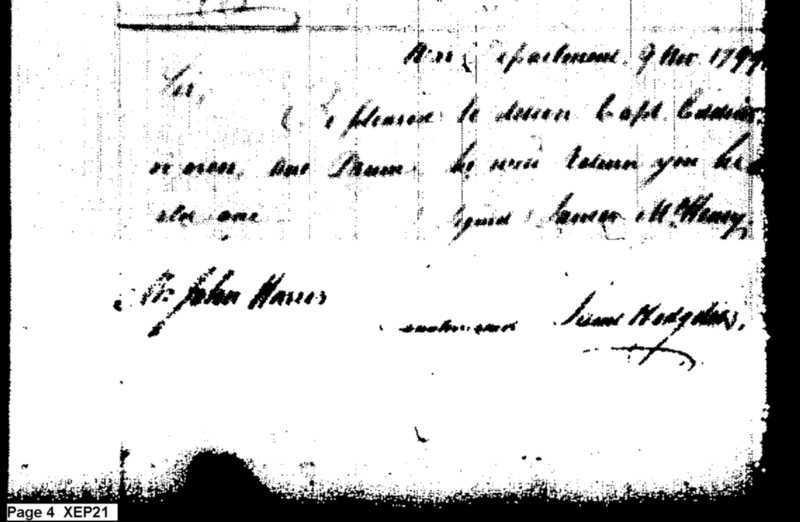 War Department 9 Nov 1799
Sir,
Be pleased to deliver Capt
or order, one Drum he will return you his
old one signed James McHenry,
Mr John Harris
Hodgdon,
Page 4 XEP21